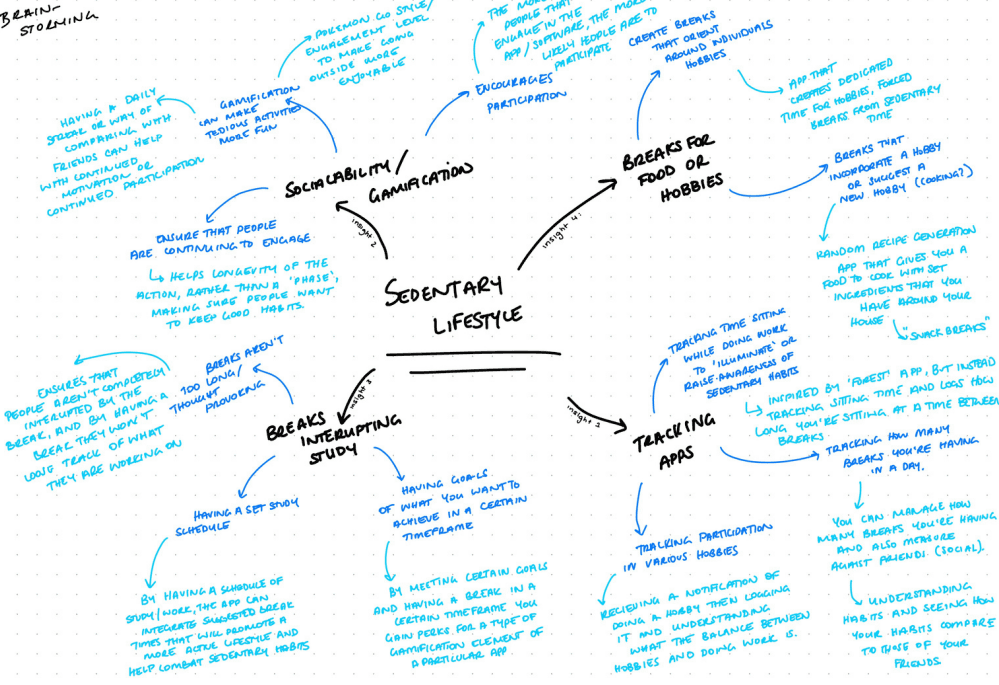 BRAIN-
STORMING
SEDENTARY
LIFESTYLE
insight 2
SOCIALABILITY/
GAMIFICATION
GAMIFICATION
CAN MAKE
TEDIOUS ACTIVITIES
MORE FUN
POKEMON GO STYLE/
ENGAGEMENT LEVEL
TO MAKE GOING
OUTSIDE MORE
ENJOYABLE
HAVING A DAILY
STREAK OR WAY OF
COMPARING WITH
FRIENDS CAN HELP
WITH CONTINUED
MOTIVATION OR
CONTINUED PARTICIPATION
ENCOURAGES
PARTICIPATION
THE MORE
PEOPLE THAT
ENGAGE IN THE
APP/SOFTWARE, THE MORE
LIKELY PEOPLE ARE TO
PARTICIPATE
ENSURE THAT PEOPLE
ARE CONTINUING TO ENGAGE
HELPS LONGEVITY OF THE
ACTION, RATHER THAN A 'PHASE',
MAKING SURE PEOPLE WANT
TO KEEP GOOD HABITS.
insight 4.
BREAKS FOR
FOOD OR
HOBBIES
CREATE BREAKS
THAT ORIENT
AROUND INDIVIDUALS
HOBBIES
APP THAT
CREATES DEDICATED
TIME FOR HOBBIES, FORCED
BREAKS FROM SEDENTARY
TIME
BREAKS THAT
INCORPORATE A HOBBY
OR SUGGEST A
NEW HOBBY (COOKING?)
RANDOM RECIPE GENERATION
APP THAT GIVES YOU A
FOOD TO COOK WITH SET
INGREDIENTS THAT YOU
HAVE AROUND YOUR
HOUSE
"SNACK BREAKS"
insight 3
BREAKS
INTERUPTING
STUDY
BREAKS AREN'T
TOO LONG/
THOUGHT
PROVOKING
ENSURES THAT
PEOPLE AREN'T COMPLETELY
INTERUPTED BY THE
BREAK, AND BY HAVING A
BREAK THEY WON'T
LONG TRACK OF WHAT
THEY ARE WORKING ON
HAVING A SET STUDY
SCHEDULE
BY HAVING A SCHEDULE OF
STUDY/WORK, THE APP CAN
INTEGRATE SUGGESTED BREAK
TIMES THAT WILL PROMOTE A
MORE ACTIVE LIFESTYLE AND
HELP COMBAT SEDENTARY HABITS
HAVING GOALS
OF WHAT YOU WANT TO
ACHIEVE IN A CERTAIN
TIMEFRAME
BY MEETING CERTAIN GOALS
AND HAVING A BREAK IN A
CERTAIN TIMEFRAME YOU
GAIN PERKS FOR A TYPE OF
GAMIFICATION ELEMENT OF
A PARTICULAR APP
insight
TRACKING
APPS
TRACKING TIME SITTING
WHILE DOING WORK
TO 'ILLUMINATE' OR
RAISE AWARENESS OF
SEDENTARY HABITS
INSPIRED BY 'FOREST' APP, BUT INSTEAD
TRACKING SITTING TIME AND LOGS HOW
LONG YOU'RE SITTING AT A TIME BETWEEN
BREAKS
TRACKING HOW MANY
BREAKS YOU'RE HAVING
IN A DAY.
YOU CAN MANAGE HOW
MANY BREAKS YOU'RE HAVING
AND ALSO MEASURE
AGAINST FRIENDS (SOCIAL).
UNDERSTANDING
HABITS AND SEEING HOW
YOUR HABITS COMPARE
TO THOSE OF YOUR
FRIENDS
TRACKING PARTICIPATION
IN VARIOUS HOBBIES
RECIEVING A NOTIFICATION OF
DOING A HOBBY THEN LOGGING
IT AND UNDERSTANDING
WHAT THE BALANCE BETWEEN
HOBBIES AND DOING WORK IS.